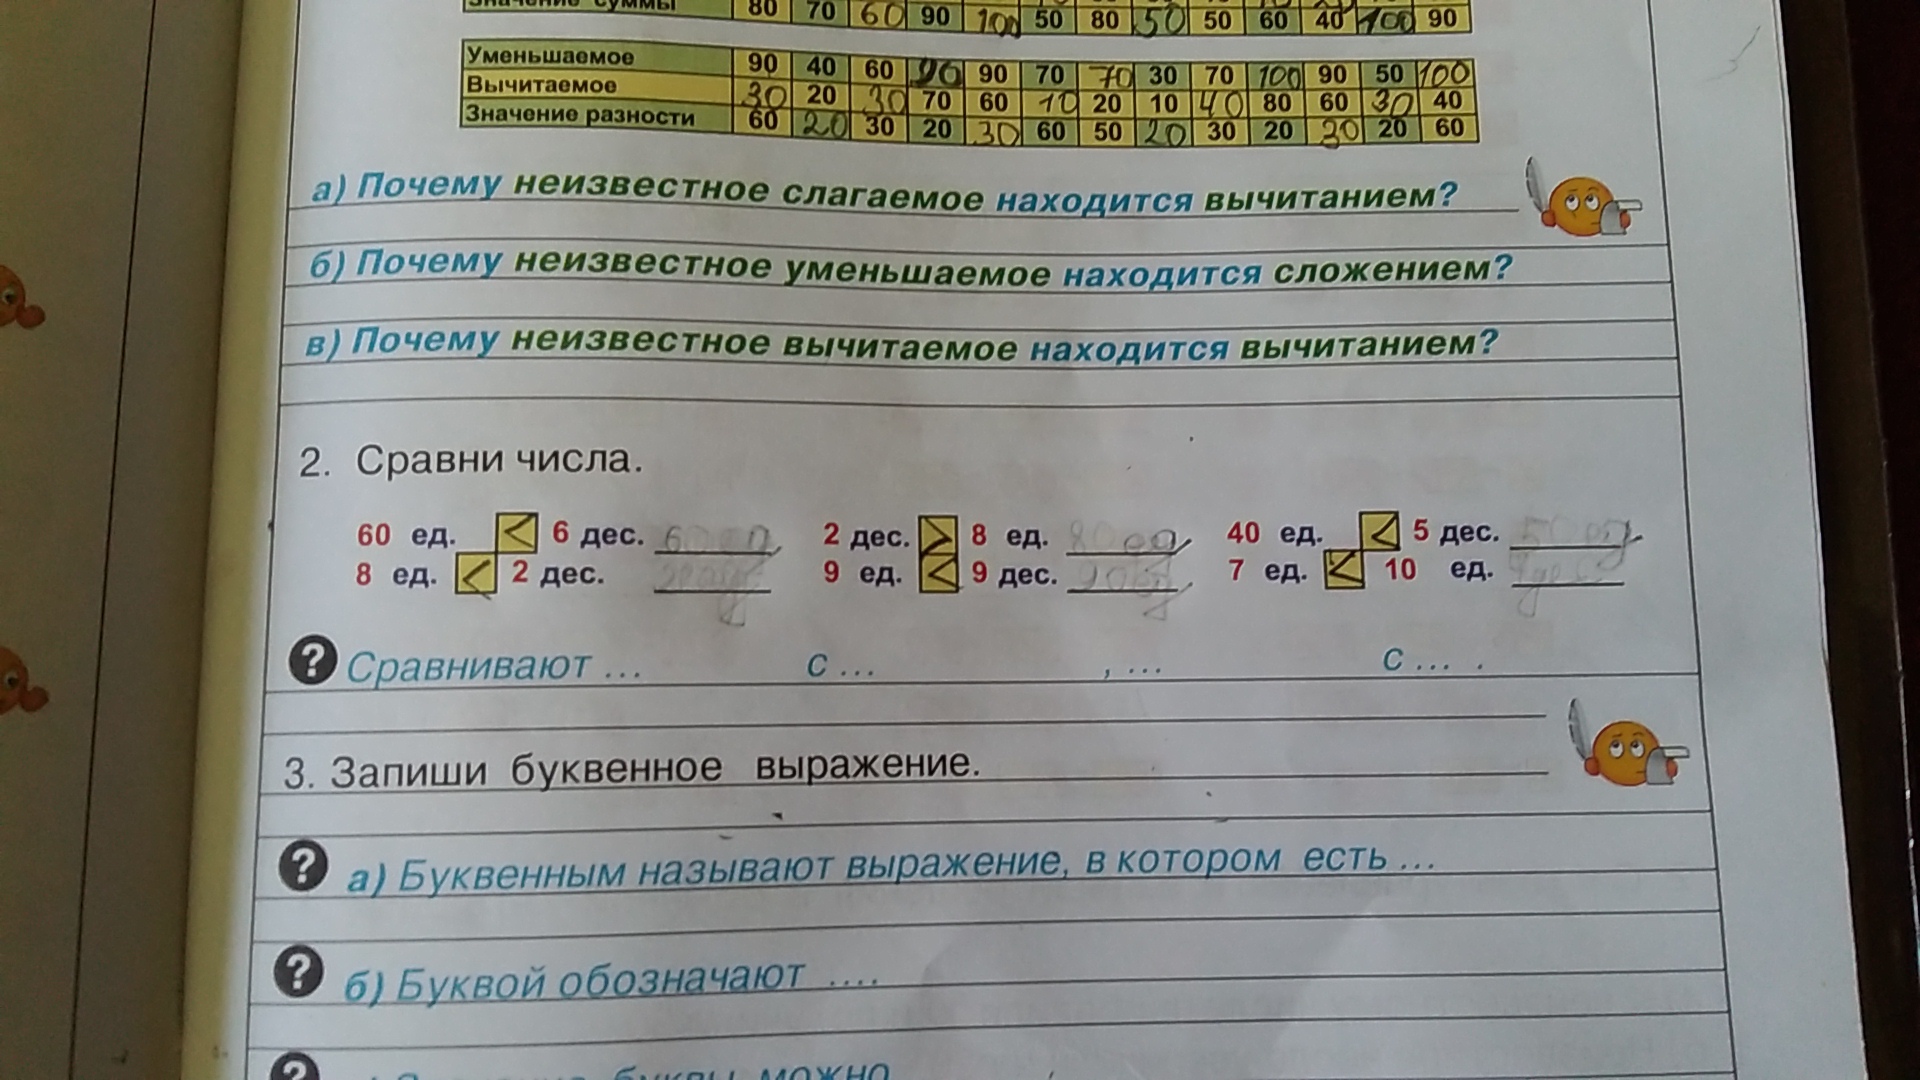 80 70 60 90 100 50 80 50 50 60 40 100 90
Уменьшаемое 90 40 60 90 90 70 70 30 70 100 90 50 100
Вычитаемое 30 20 30 70 60 10 20 10 40 80 60 30 40
Значение разности 60 20 30 20 30 60 50 20 30 20 30 20 60
а) Почему неизвестное слагаемое находится вычитанием?
б) Почему неизвестное уменьшаемое находится сложением?
в) Почему неизвестное вычитаемое находится вычитанием?
2. Сравни числа.
60 ед. < 6 дес. 2 дес. > 8 ед. 40 ед. < 5 дес.
8 ед. < 2 дес. 9 ед. < 9 дес. 7 ед. < 10 ед.
? Сравнивают ... с ... , ... с ... .
3. Запиши буквенное выражение.
? а) Буквенным называют выражение, в котором есть ...
? б) Буквой обозначают ....
? буквы можно